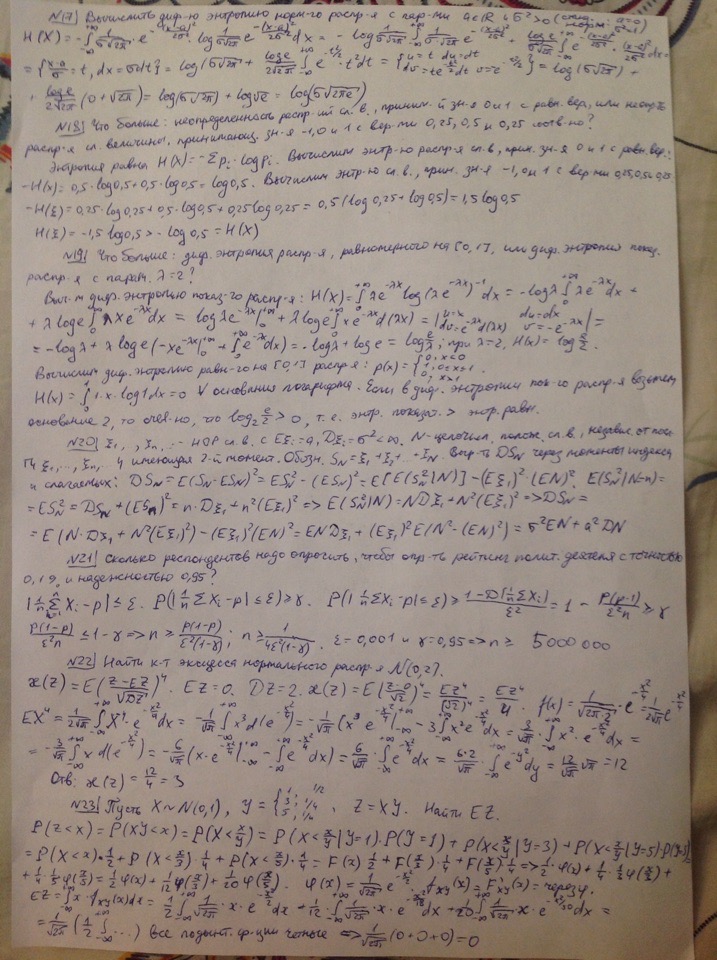 №17| Вычислить диф-ю энтропию норм-го распр-я с пар-ми a∈R и σ²>0 (станд. норм.: a=0, σ²=1)
H(X) = -∫ 1/(σ√2π) · e^(-(x-a)²/2σ²) · log 1/(σ√2π) e^(-(x-a)²/2σ²) dx = -log 1/(σ√2π) ∫ 1/(σ√2π) · e^(-(x-a)²/2σ²) dx + log e/(σ√2π) ∫ e^(-(x-a)²/2σ²) · (x-a)²/2σ² dx =
= {(x-a)/σ = t, dx = σdt} = log(σ√2π) + log e/(2√2π) ∫ e^(-t²/2) · t² dt = {u=t du=dt dv=te^(-t²/2) v=-e^(-t²/2)} = log(σ√2π) +
+ log e/(2√2π) (0+√2π) = log(σ√2π) + log√e = log(σ√2πe)
№18| Что больше: неопределенность распр-ий сл. в., приним-й зн-я 0 и 1 с равн. вер.,
распр-я сл. величины, принимающ. зн-я -1, 0 и 1 с вер-ми 0,25, 0,5 и 0,25 соотв-но?
Энтропия равна H(X) = -Σ pᵢ·log pᵢ. Вычислим энтр-ю распр-я сл.в., прин. зн-я 0 и 1 с равн. вер.:
-H(x) = 0,5·log0,5 + 0,5·log0,5 = log0,5. Вычислим энтр-ю сл. в., прин. зн-я -1, 0 и 1 с вер-ми 0,25, 0,5 и 0,25
-H(ξ) = 0,25·log0,25 + 0,5·log0,5 + 0,25 log0,25 = 0,5(log0,25 + log0,5) = 1,5 log0,5
H(ξ) = -1,5 log0,5 > -log0,5 = H(X)
№19| Что больше: диф. энтропия распр-я, равномерного на [0,1], или диф. энтропия показ.
распр-я с парам. λ=2?
Выч-м диф. энтропию показ-го распр-я: H(X) = ∫₀^+∞ λe^(-λx) log(λe^(-λx))^(-1) dx = -log λ ∫₀^+∞ λe^(-λx) dx +
+ λ log e ∫₀^+∞ λxe^(-λx) dx = log λ e^(-λx)|₀^+∞ + λ log e ∫₀^+∞ xe^(-λx) d(λx) = |u=x du=dx dv=e^(-λx)d(λx) v=-e^(-λx)| =
= -log λ + λ log e (-xe^(-λx)|₀^+∞ + ∫₀^+∞ e^(-λx) dx) = -log λ + log e = log e/λ; при λ=2, H(x) = log e/2.
Вычислим диф. энтропию равн-го на [0,1] распр-я: p(x) = {0, x<0 1, 0≤x≤1 0, x>1 .
H(x) = ∫₀¹ 1·x·log1dx = 0 ∀ основания логарифма. Если в диф. энтропии пок-го распр-я возьмем
основание 2, то очев-но, что log₂ e/2 > 0, т.е. энтр. показат. > энтр. равн.
№20| ξ₁, ..., ξₙ, ... - НОР сл. в. с Eξᵢ=a, Dξᵢ=σ²<∞. N - целочисл. полож. сл. в., независ. от посл-
ти ξ₁, ..., ξₙ, ... и имеющая 2-й момент. Обозн. S_N = ξ₁+ξ₂+...+ξ_N. Выр-ть DS_N через моменты индекса
и слагаемых: DS_N = E(S_N - ES_N)² = ES_N² - (ES_N)² = E[E(S_N²|N)] - (Eξ₁)²·(EN)². E(S_N²|N=n) =
= ESₙ² = DSₙ + (ESₙ)² = n·Dξ₁ + n²(Eξ₁)² => E(S_N²|N) = NDξ₁ + N²(Eξ₁)² => DS_N =
= E(N·Dξ₁ + N²(Eξ₁)²) - (Eξ₁)²(EN)² = EN Dξ₁ + (Eξ₁)² E(N² - (EN)²) = σ²EN + a²DN
№21| Сколько респондентов надо опросить, чтобы опр-ть рейтинг полит. деятеля с точностью
0,1% и надежностью 0,95?
|1/n Σ Xᵢ - p| ≤ ε. P(|1/n Σ Xᵢ - p| ≤ ε) ≥ γ. P(|1/n Σ Xᵢ - p| ≤ ε) ≥ 1 - D(1/n Σ Xᵢ)/ε² = 1 - p(1-p)/(ε²n) ≥ γ
p(1-p)/(ε²n) ≤ 1-γ => n ≥ p(1-p)/(ε²(1-γ)); n ≥ 1/(4ε²(1-γ)). ε=0,001 и γ=0,95 => n ≥ 5000 000
№22| Найти к-т эксцесса нормального распр-я N(0,2).
æ(z) = E((Z-EZ)/√DZ)⁴. EZ=0. DZ=2. æ(z) = E((Z-0)/√2)⁴ = EZ⁴/(√2)⁴ = EZ⁴/4. f(x) = 1/(√2π·2) · e^(-x²/4) = 1/(2√π) e^(-x²/4)
EX⁴ = 1/(2√π) ∫ X⁴·e^(-x²/4) dx = -1/√π ∫ x³ d(e^(-x²/4)) = -1/√π (x³ e^(-x²/4)|-∞^+∞ - 3∫ x² e^(-x²/4) dx = 3/√π ∫ x²·e^(-x²/4) dx =
= -6/√π ∫ x d(e^(-x²/4)) = -6/√π (x·e^(-x²/4)|-∞^+∞ - ∫ e^(-x²/4) dx) = 6/√π · ∫ e^(-x²/4) dx = 6·2/√π ∫ e^(-y²) dy = 12/√π √π = 12
Отв: æ(z) = 12/4 = 3
№23| Пусть X ~ N(0,1), Y = {1, 1/2 3, 1/4 5, 1/4 , Z = XY. Найти EZ.
P(Z<x) = P(XY<x) = P(X<x/Y) = P(X<x/Y|Y=1)·P(Y=1) + P(X<x/Y|Y=3) + P(X<x/Y|Y=5)·P(Y=5)
= P(X<x)·1/2 + P(X<x/3)·1/4 + P(X<x/5)·1/4 = F(x)·1/2 + F(x/3)·1/4 + F(x/5)·1/4 => 1/2·φ(x) + 1/4·1/3 φ(x/3) +
+ 1/4·1/5 φ(x/5) = 1/2 φ(x) + 1/12 φ(x/3) + 1/20 φ(x/5). φ(x) = 1/√2π e^(-x²/2). f_XY(x) = F'_XY(x) =
EZ = ∫ x·f_XY(x)dx = 1/2 ∫ 1/√2π · x · e^(-x²/2) dx + 1/12 ∫ 1/√2π · x · e^(-x²/18) dx + 1/20 ∫ 1/√2π · x · e^(-x²/50) dx =
= 1/√2π (1/2 ∫ ...) все подынт. ф-ции четные => 1/√2π (0+0+0) = 0